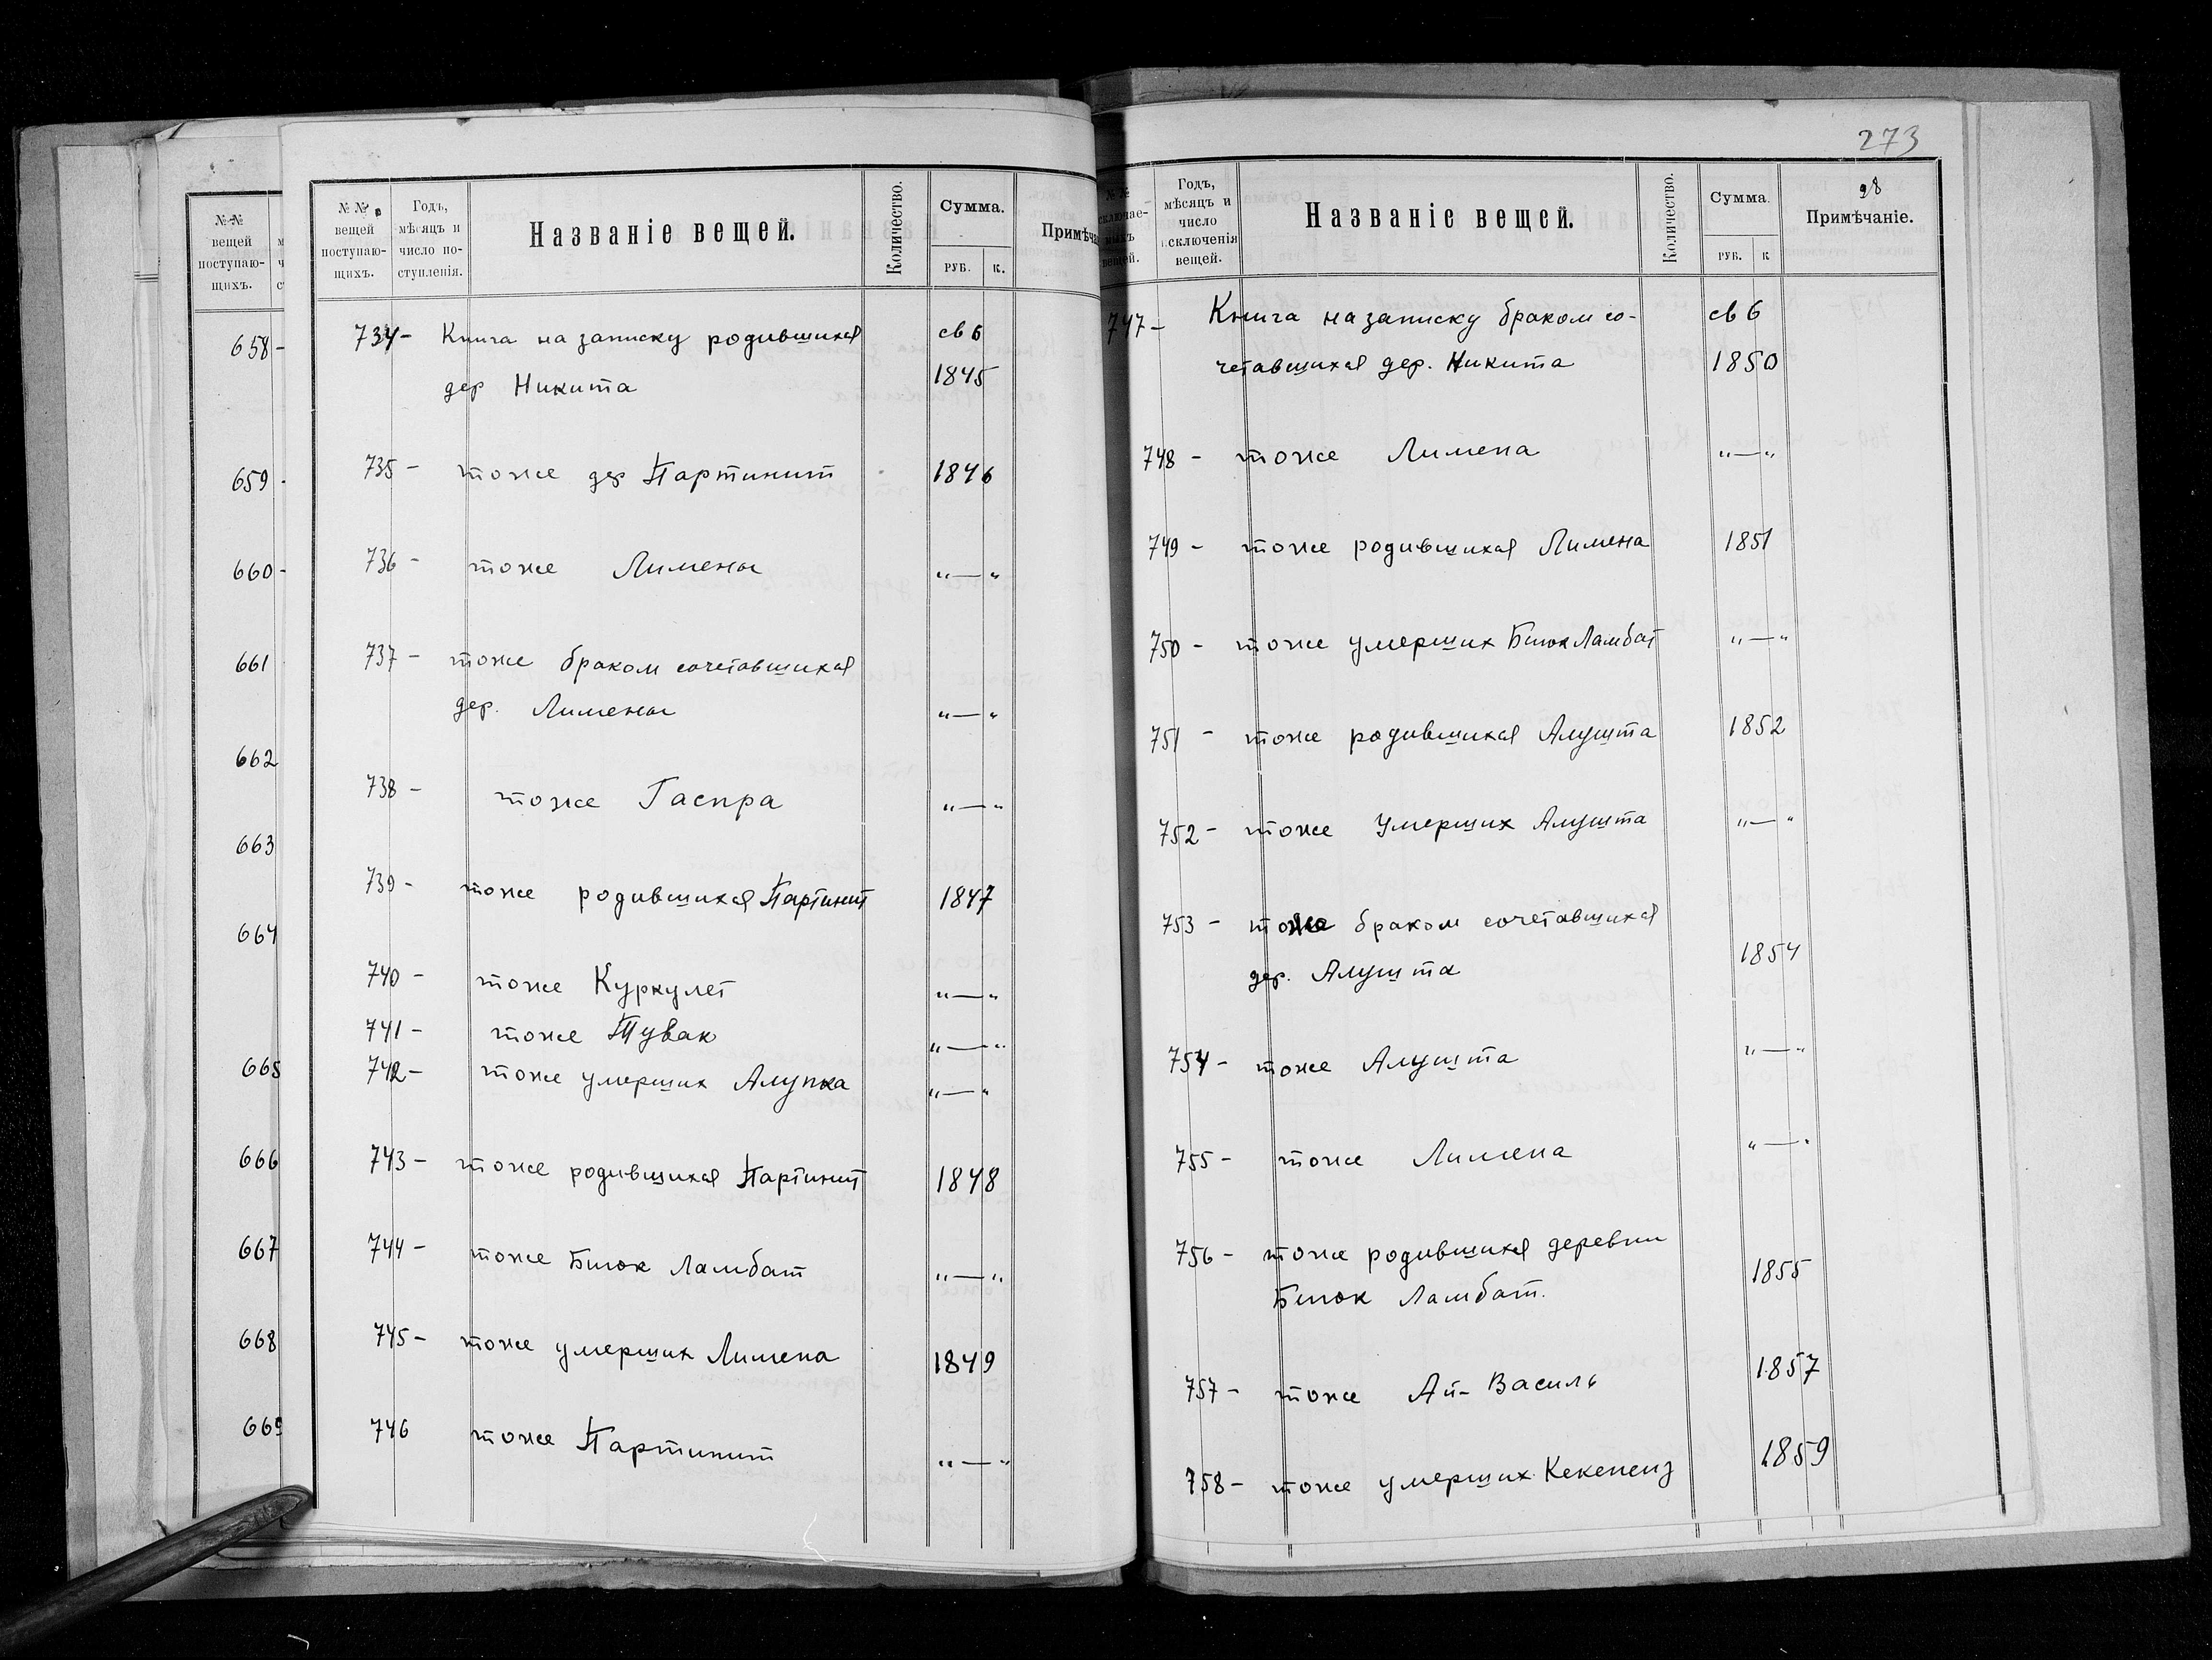 273
№№ вещей поступаю-щихъ.
658 -
659 -
660 -
661
662
663
664
665
666
667
668
669
№№ вещей поступаю-щихъ.
Годъ, мѣсяцъ и число по-ступленія.
Названіе вещей.
Количество.
Сумма.
РУБ. К.
Примѣча
734 - Книга на записку родившихся св 6
дер Никита 1845
735 - тоже дер Партинит 1846
736 - тоже Лимены "—"
737 - тоже браком сочетавшихся
дер. Лимены "—"
738 - тоже Гаспра "—"
739 - тоже родившихся Партинит 1847
740 - тоже Куркулет "—"
741 - тоже Тувак "—"
742 - тоже умерших Алупка "—"
743 - тоже родившихся Партинит 1848
744 - тоже Биюк Ламбат "—"
745 - тоже умерших Лимена 1849
746 тоже Партинит "—"
№№ сключае-мыхъ вещей.
Годъ, мѣсяцъ и число исключенія вещей.
Названіе вещей.
Количество.
Сумма.
РУБ. К
98
Примѣчаніе.
747 - Книга на записку браком со- св 6
четавшихся дер. Никита 1850
748 - тоже Лимена "—"
749 - тоже родившихся Лимена 1851
750 - тоже умерших Биюк Ламбат "—"
751 - тоже родившихся Алушта 1852
752 - тоже Умерших Алушта "—"
753 - тоже браком сочетавшихся
дер. Алушта 1854
754 - тоже Алушта "—"
755 - тоже Лимена "—"
756 - тоже родившихся деревни
Биюк Ламбат. 1855
757 - тоже Ай-Василь 1857
758 - тоже умерших Кекенеиз 1859